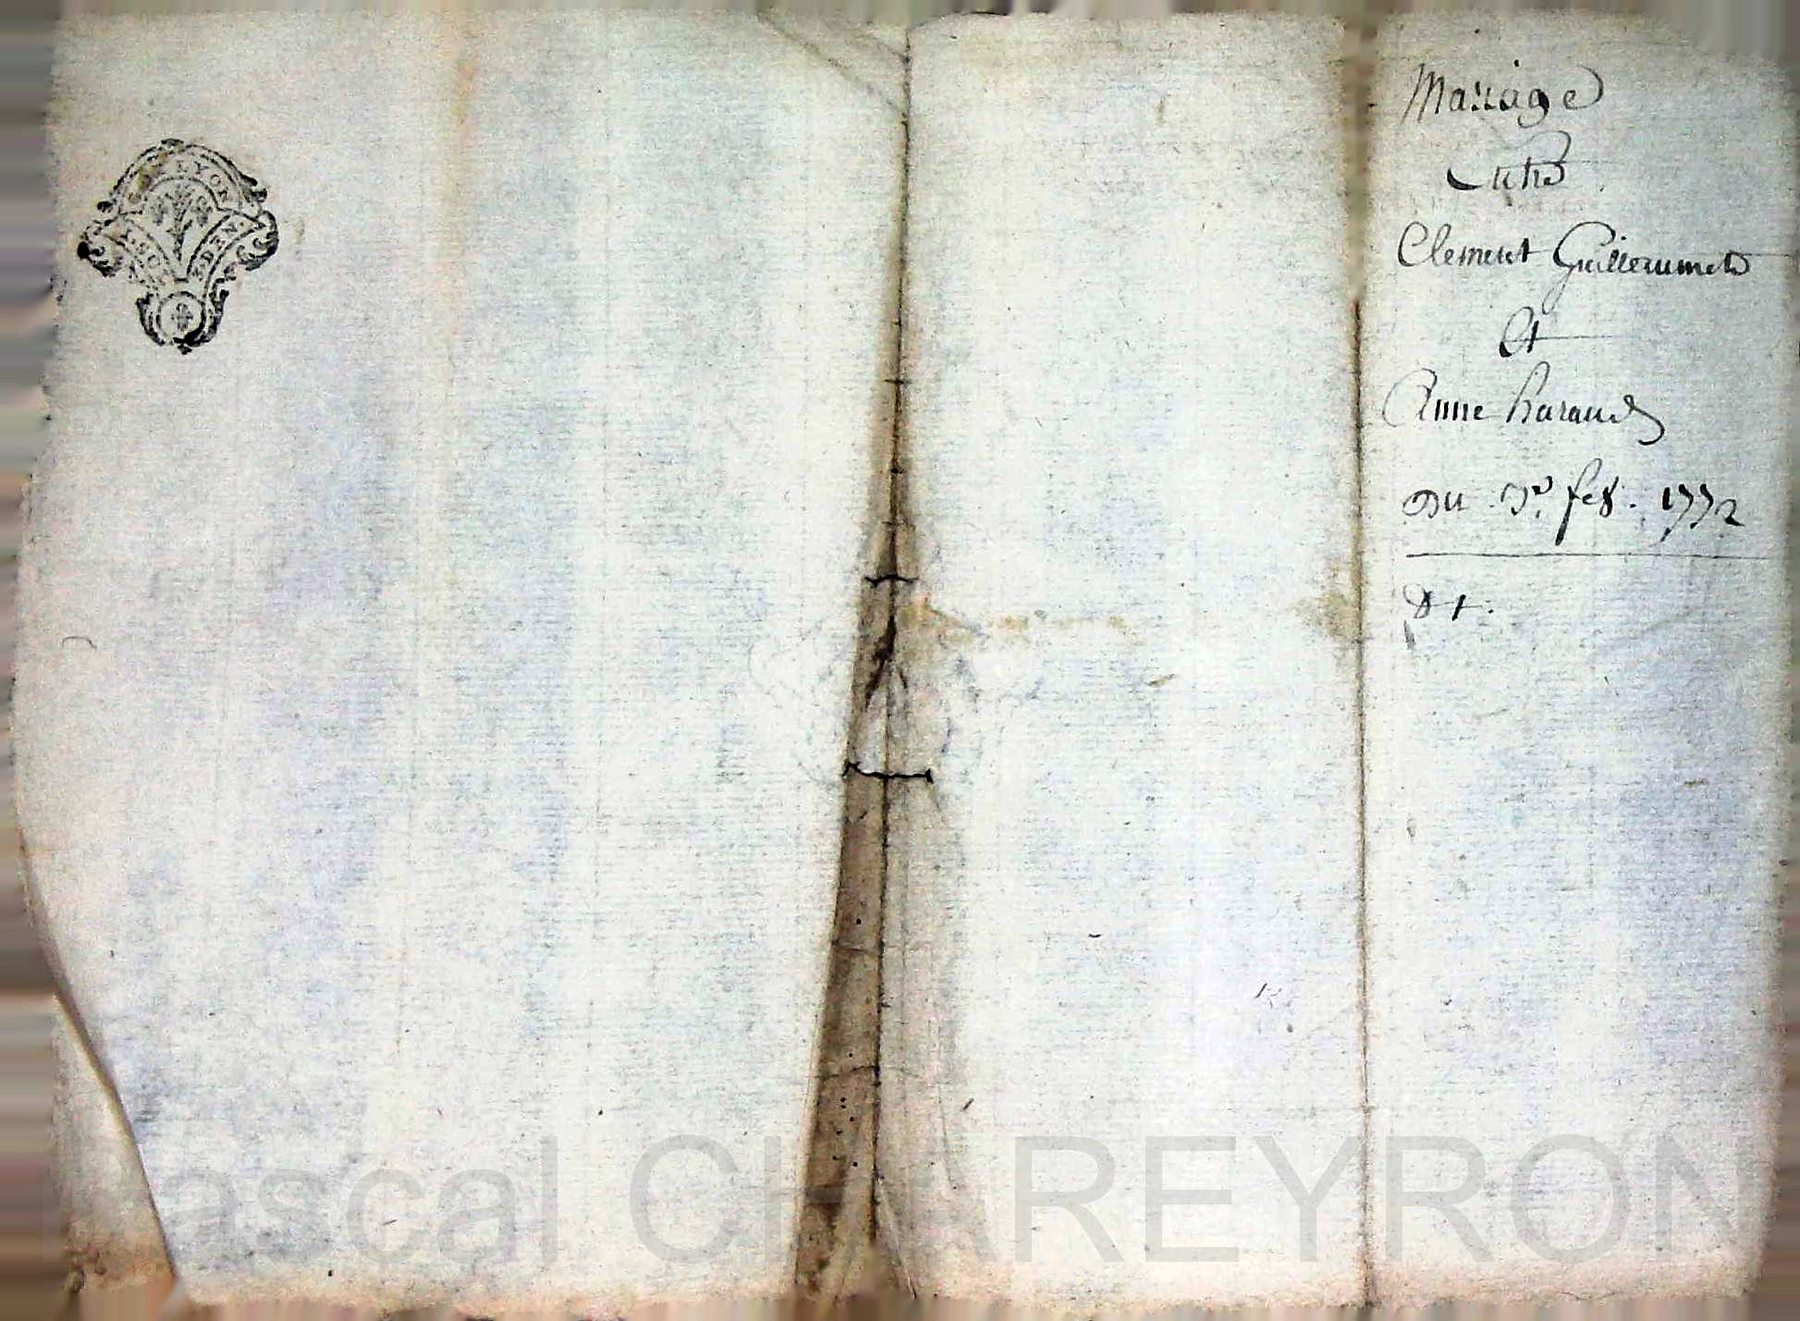 LYON
Mariage
Entre
Clement Guilleaumet
Et
Anne
Du 3e. feb. 1772
Pascal CHAREYRON